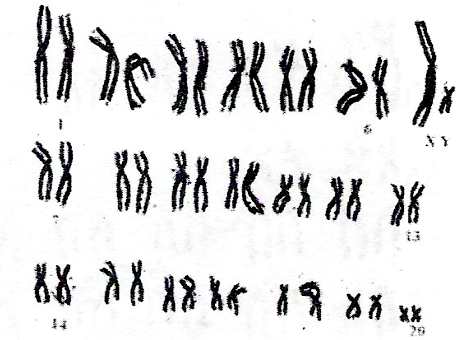 1 6
X Y
7 13
14 20